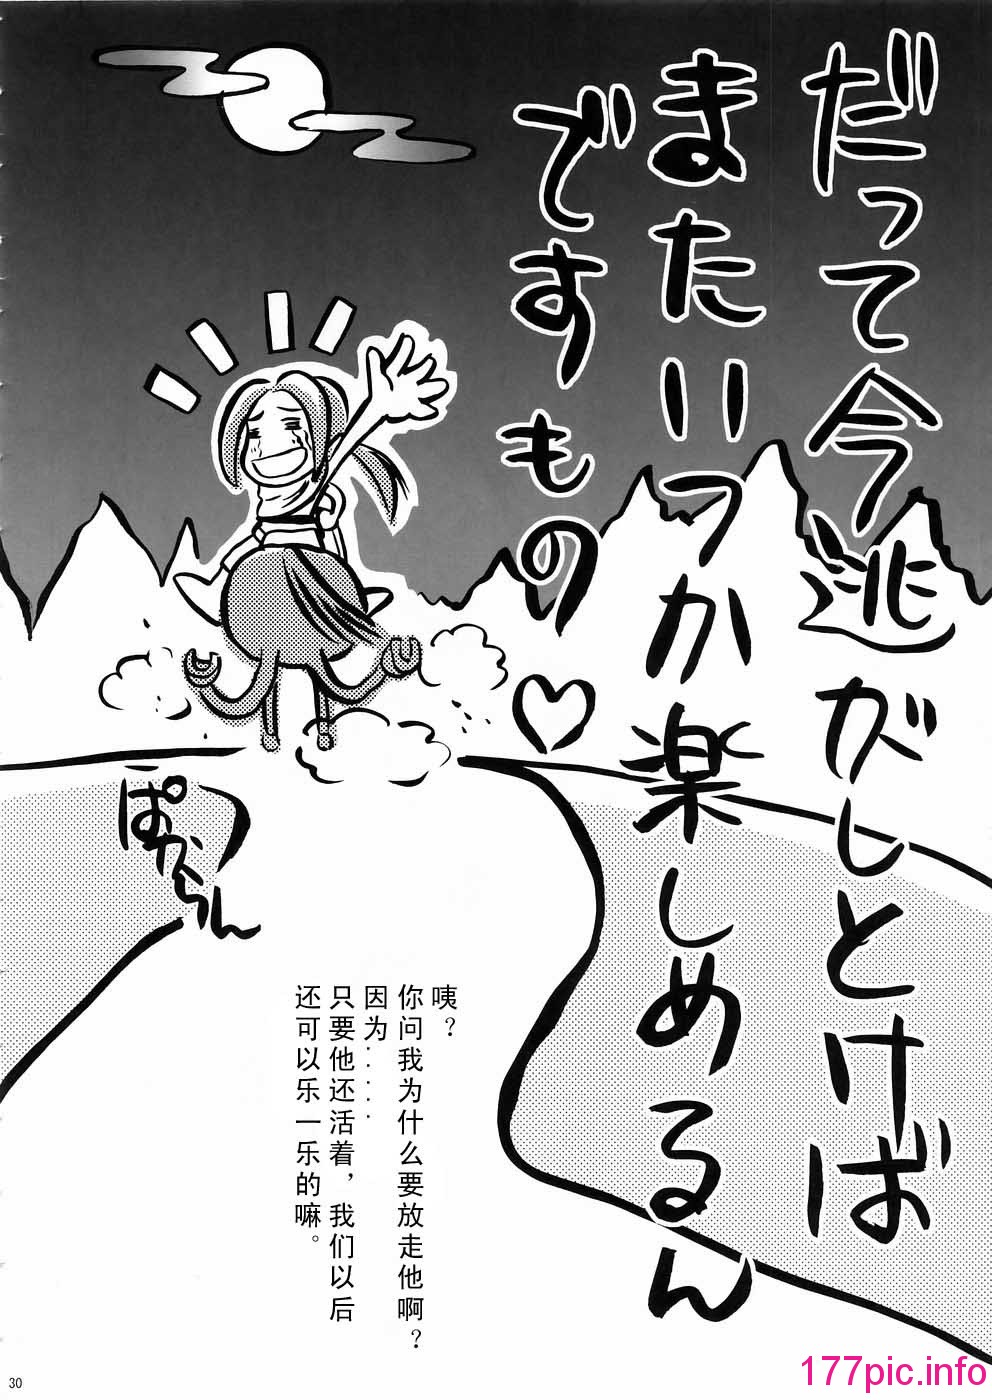 だって今逃がしとけば
またいつか楽しめるん
ですもの♡
ぱからっ
らん
咦？
你问我为什么要放走他啊？
因为......
只要他还活着，我们以后
还可以乐一乐的嘛。
30
177pic.info